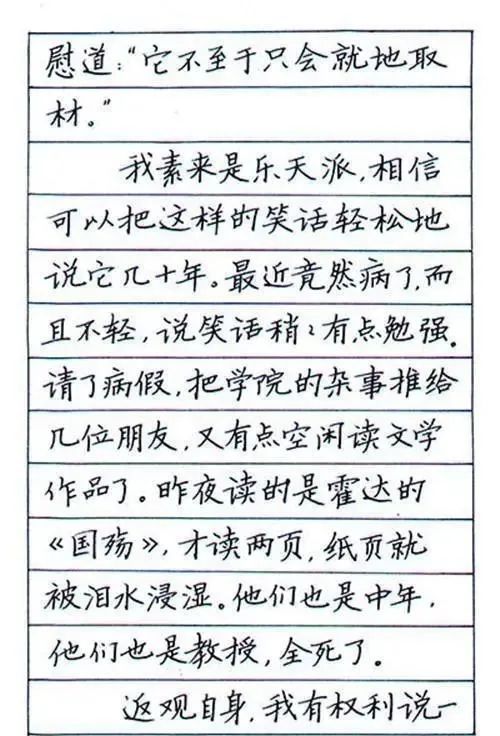 慰道：“它不至于只会就地取
材。”
我素来是乐天派，相信
可以把这样的笑话轻松地
说它几十年。最近竟然病了，而
且不轻，说笑话稍〻有点勉强。
请了病假，把学院的杂事推给
几位朋友，又有点空闲读文学
作品了。昨夜读的是霍达的
《国殇》，才读两页，纸页就
被泪水浸湿。他们也是中年，
他们也是教授，全死了。
返观自身，我有权利说一